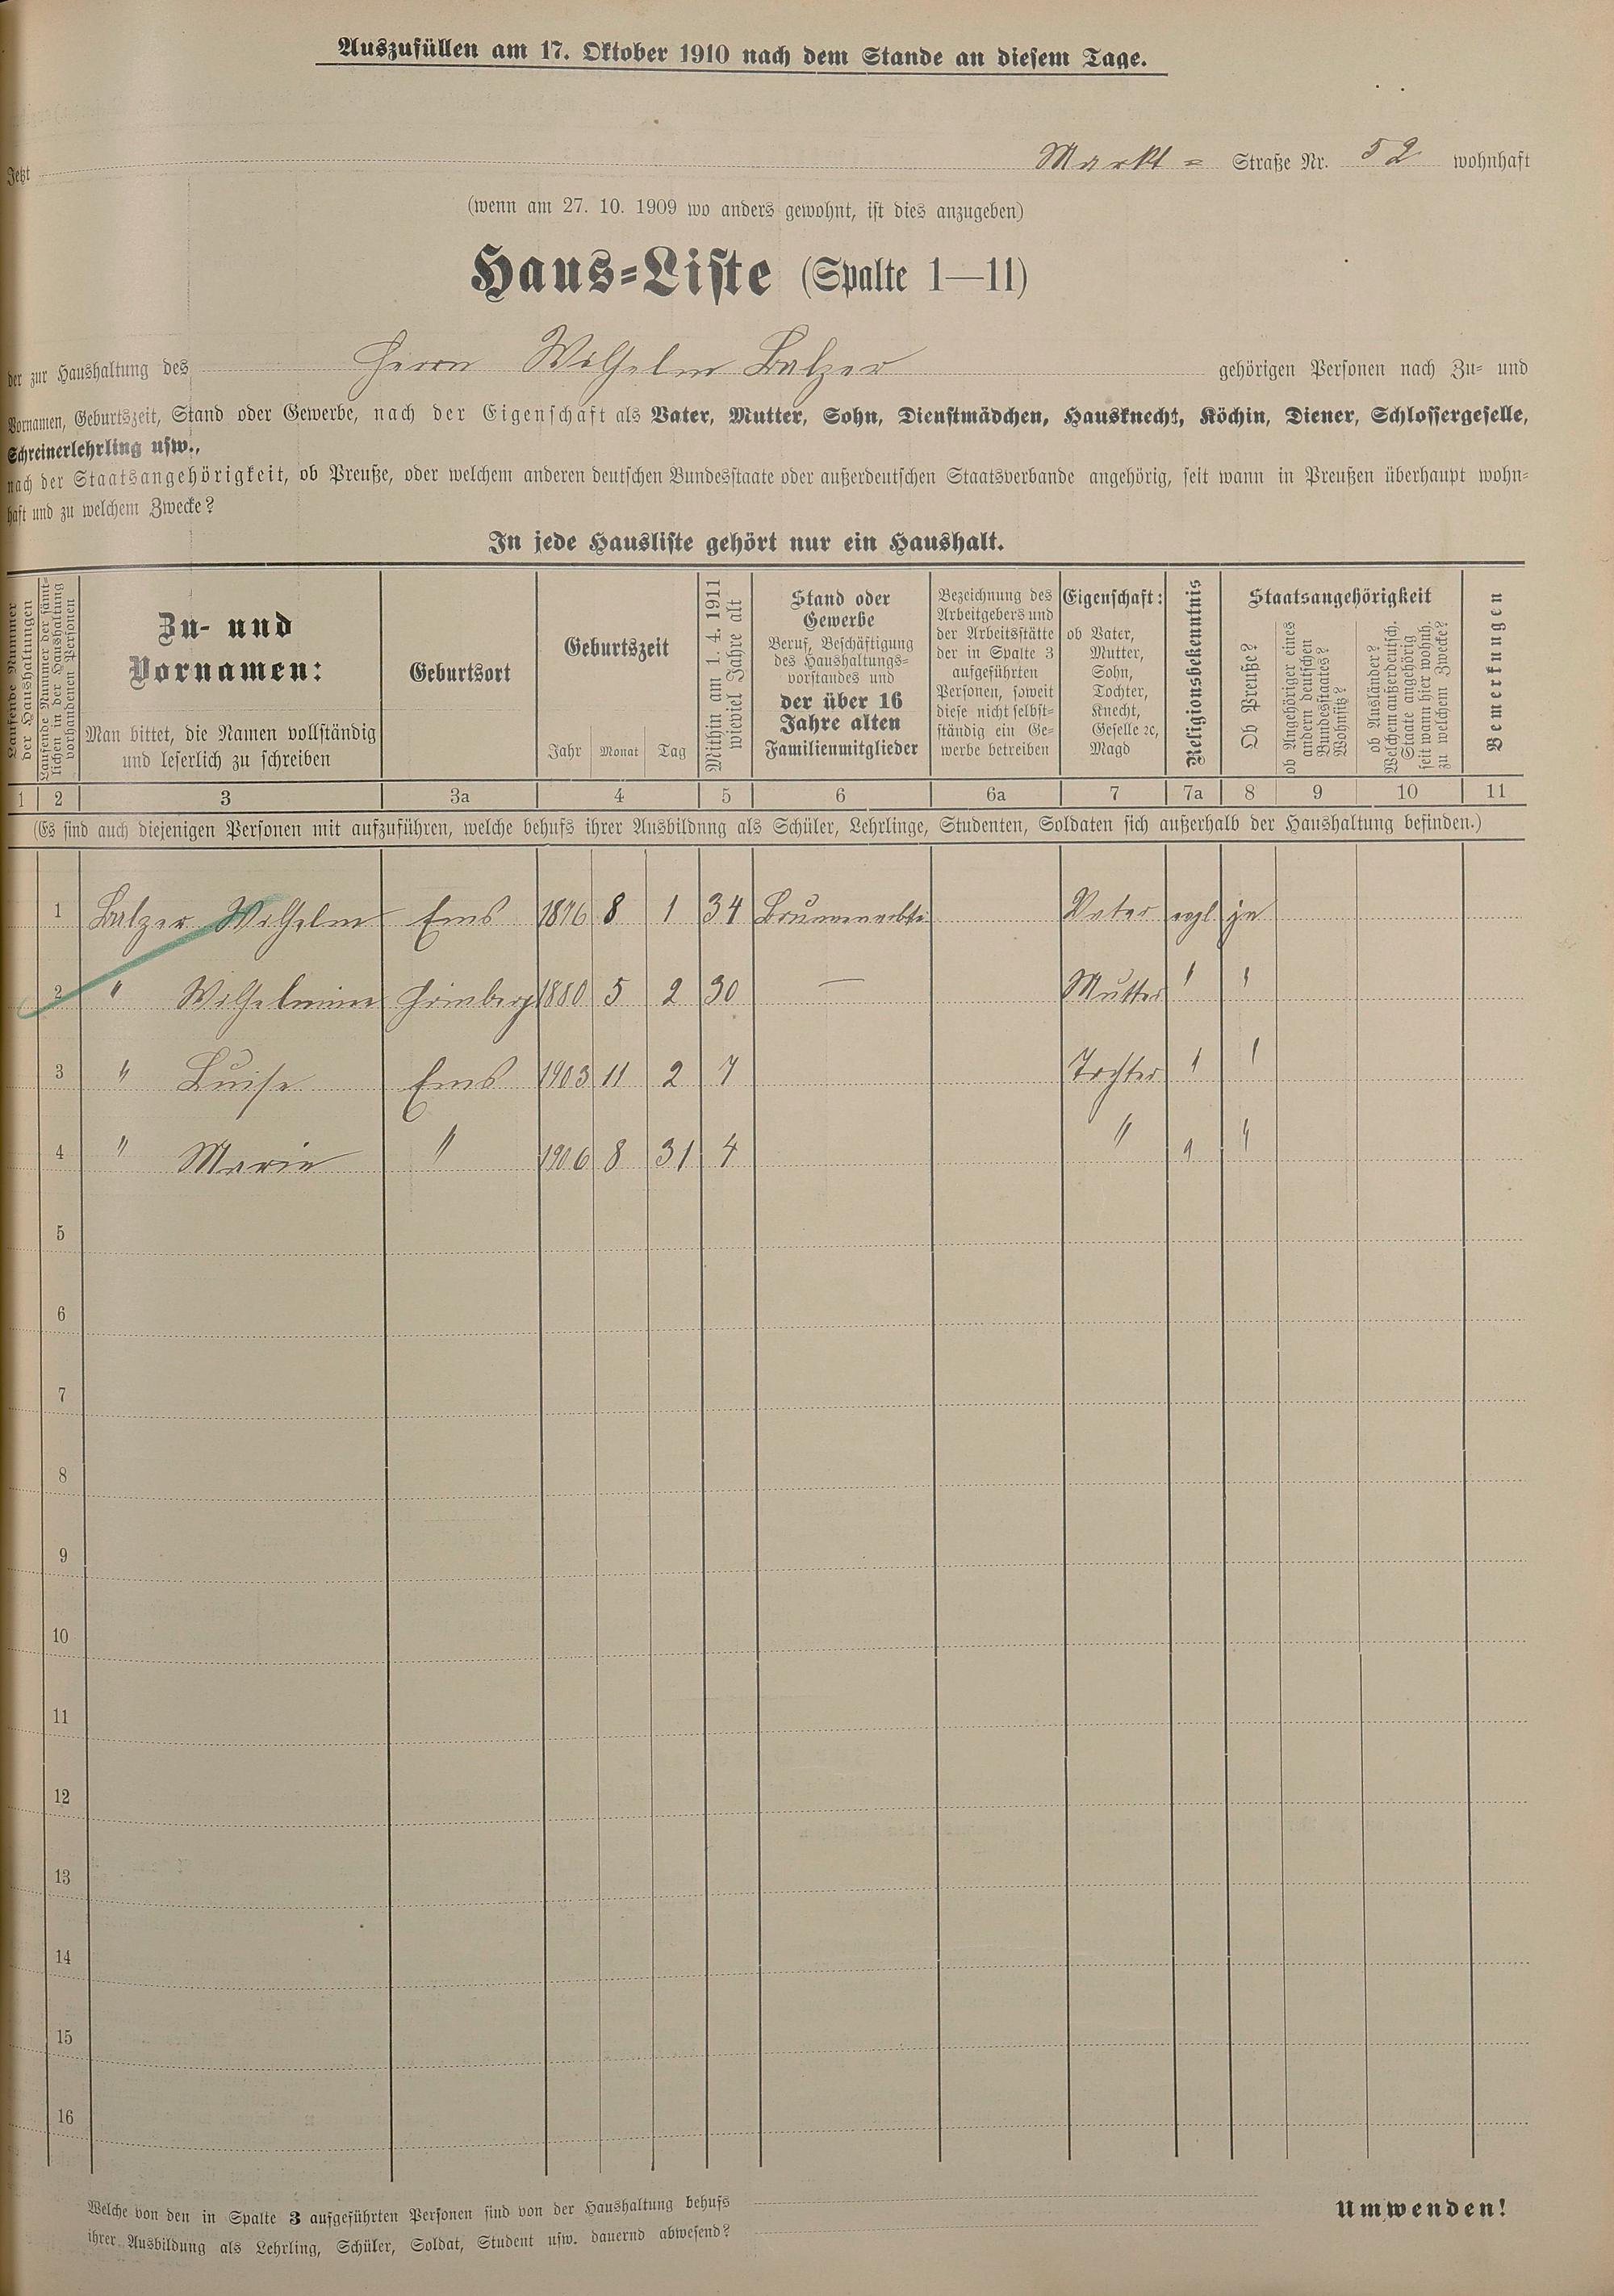 Auszufüllen am 17. Oktober 1910 nach dem Stande an diesem Tage.
Jetzt Markt = Straße Nr. 52 wohnhaft
(wenn am 27. 10. 1909 wo anders gewohnt, ist dies anzugeben)
Haus=Liste (Spalte 1—11)
der zur Haushaltung des Herrn Wilhelm Balzer gehörigen Personen nach Zu= und
Vornamen, Geburtszeit, Stand oder Gewerbe, nach der Eigenschaft als Vater, Mutter, Sohn, Dienstmädchen, Hausknecht, Köchin, Diener, Schlossergeselle,
Schreinerlehrling usw.,
nach der Staatsangehörigkeit, ob Preuße, oder welchem anderen deutschen Bundesstaate oder außerdeutschen Staatsverbande angehörig, seit wann in Preußen überhaupt wohn=
haft und zu welchem Zwecke?
In jede Hausliste gehört nur ein Haushalt.
Laufende Nummer
der Haushaltungen
Laufende Nummer der sämt=
lichen in der Haushaltung
vorhandenen Personen
Zu- und
Vornamen:
Man bittet, die Namen vollständig
und leserlich zu schreiben
Geburtsort
Geburtszeit
Jahr Monat Tag
Mithin am 1. 4. 1911
wieviel Jahre alt
Stand oder
Gewerbe
Beruf, Beschäftigung
des Haushaltungs=
vorstandes und
der über 16
Jahre alten
Familienmitglieder
Bezeichnung des
Arbeitgebers und
der Arbeitsstätte
der in Spalte 3
aufgeführten
Personen, soweit
diese nicht selbst=
ständig ein Ge=
werbe betreiben
Eigenschaft:
ob Vater,
Mutter,
Sohn,
Tochter,
Knecht,
Geselle ꝛc,
Magd
Religionsbekenntnis
Staatsangehörigkeit
Ob Preuße?
ob Angehöriger eines
andern deutschen
Bundesstaates?
Wohnsitz?
ob Ausländer?
Welchem außerdeutsch.
Staate angehörig
seit wann hier wohnh.
zu welchem Zwecke?
Bemerkungen
1 2 3 3a 4 5 6 6a 7 7a 8 9 10 11
(Es sind auch diejenigen Personen mit aufzuführen, welche behufs ihrer Ausbildnng als Schüler, Lehrlinge, Studenten, Soldaten sich außerhalb der Haushaltung befinden.)
1 Balzer Wilhelm Ems 1876 8 1 34 Vater evgl ja
2 " Wilhelmine 1880 5 2 30 — Mutter " "
3 " Luise Ems 1903 11 2 7 Tochter " "
4 " Marie " 1906 8 31 4 " " "
5
6
7
8
9
10
11
12
13
14
15
16
Welche von den in Spalte 3 aufgeführten Personen sind von der Haushaltung behufs
ihrer Ausbildung als Lehrling, Schüler, Soldat, Student usw. dauernd abwesend?
Umwenden!